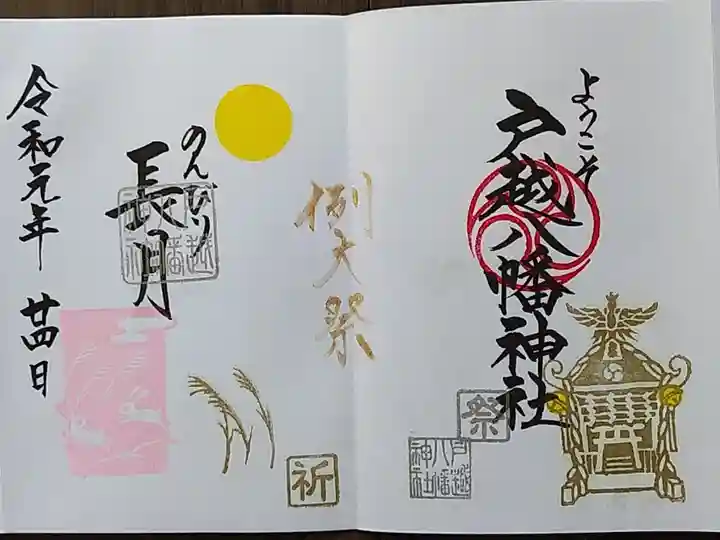 ようこそ
戸越八幡神社
祭
戸越八幡神社
例大祭
祈
のんびり
長月
戸越八幡神社
令和元年 廿四日